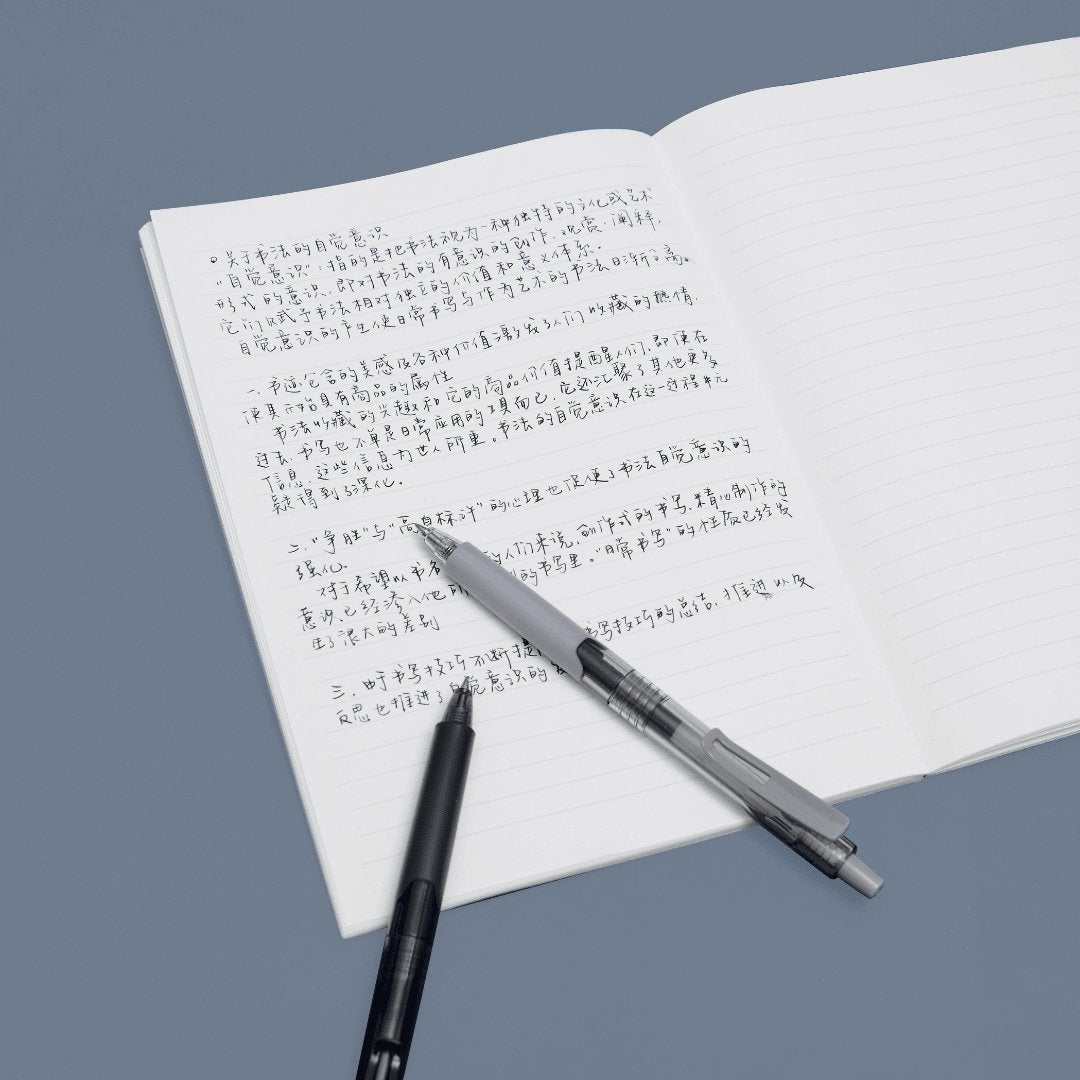 关于书法的自觉意识
"自觉意识":指的是把书法视为一种独特的文化或艺术
形式的意识,即对书法的有意识的创作、观赏、阐释,
它们赋予书法相对独立的价值和意义体系。
自觉意识的产生使日常书写与作为艺术的书法日渐分离。
一、书迹包含的美感及各种价值激发了人们收藏的热情,
使其开始具有商品的属性
书法收藏的兴趣和它的商品价值提醒人们,即便在
过去,书写也不单是日常应用的工具而已,它还汇聚了其他更多
信息,这些信息为世人所重。书法的自觉意识在这一过程中无
疑得到了深化。
二、"争胜"与"高自标许"的心理也促使了书法自觉意识的
强化。
对于希望以书名 的人们来说,创作式的书写、精心制作的
意识已经渗入他 的书写里。"日常书写"的性质已经发
生了很大的差别
三、由于书写技巧不断提 书写技巧的总结、推进以及
反思也推进了自觉意识的